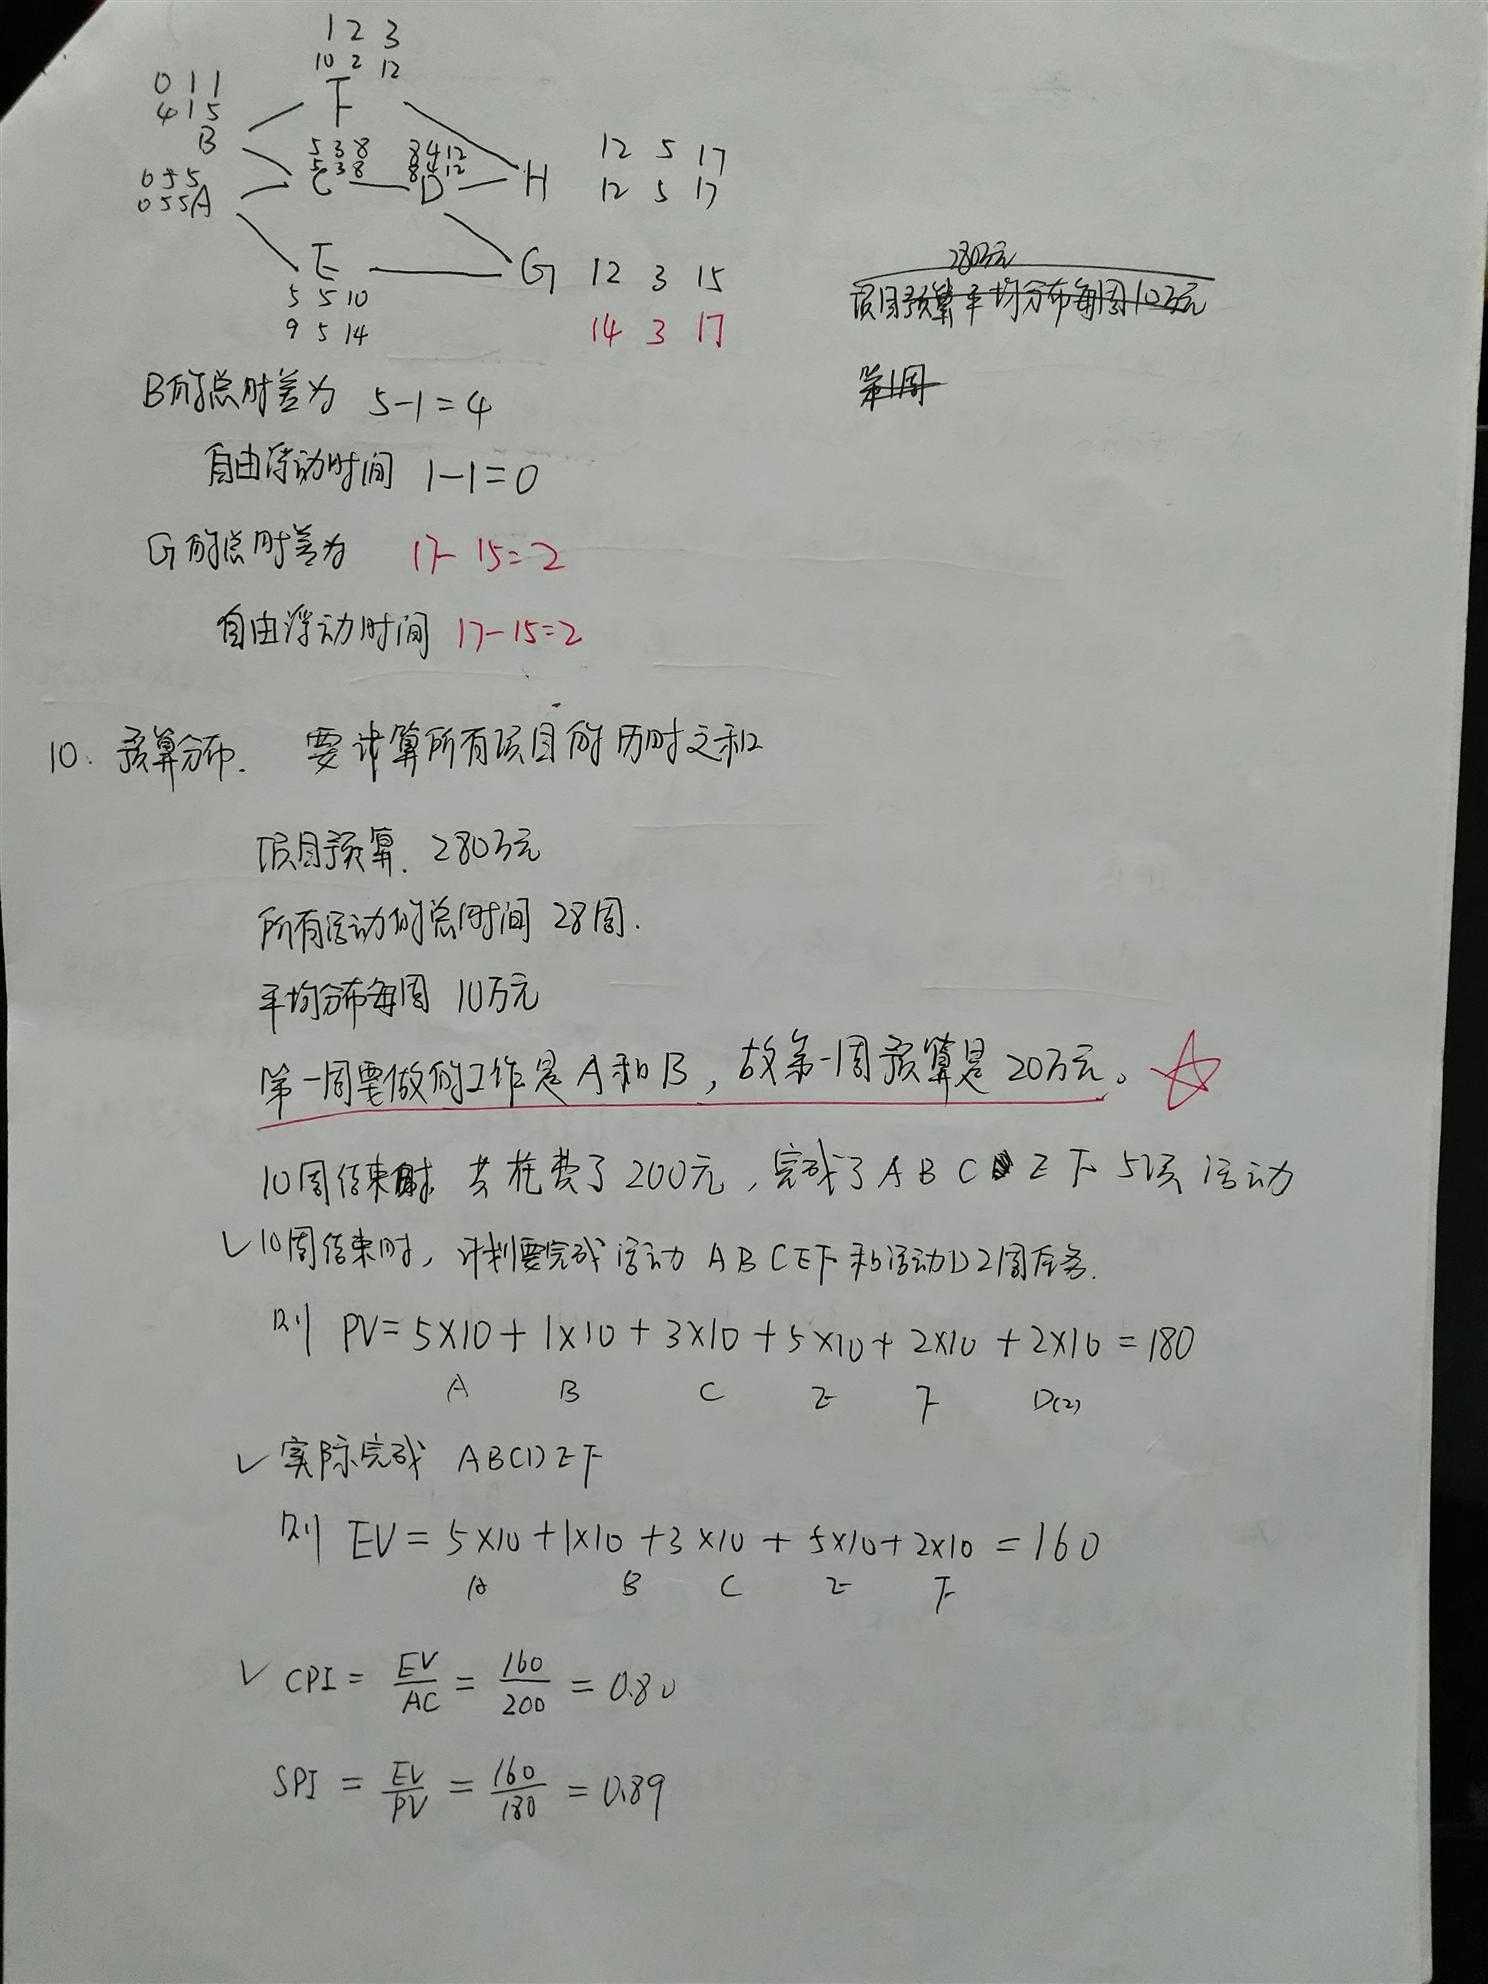 1 2 3
10 2 12
0 1 1
4 1 5
F
B
5 3 8 8 4 12
5 3 8 8 4 12
12 5 17
0 5 5
C D H 12 5 17
0 5 5 A
E G 12 3 15
5 5 10
9 5 14 14 3 17
280万元
项目预算平均分布每周10万元
第1周
B的总时差为 5-1=4
自由浮动时间 1-1=0
G的总时差为 17-15=2
自由浮动时间 17-15=2
10. 预算分布. 要计算所有项目的历时之和
项目预算. 280万元
所有活动的总时间 28周.
平均分布每周 10万元
第一周要做的工作是A和B, 故第一周预算是20万元。
10周结束时 共花费了200元, 完成了 A B C E F 5项活动
✓10周结束时, 计划要完成活动 A B C E F 和活动D2周任务.
则 PV=5×10+1×10+3×10+5×10+2×10+2×10=180
A B C E F D(2)
✓ 实际完成 ABCDEF
则 EV=5×10+1×10+3×10+5×10+2×10=160
A B C E F
✓ CPI = EV/AC = 160/200 = 0.80
SPI = EV/PV = 160/180 = 0.89